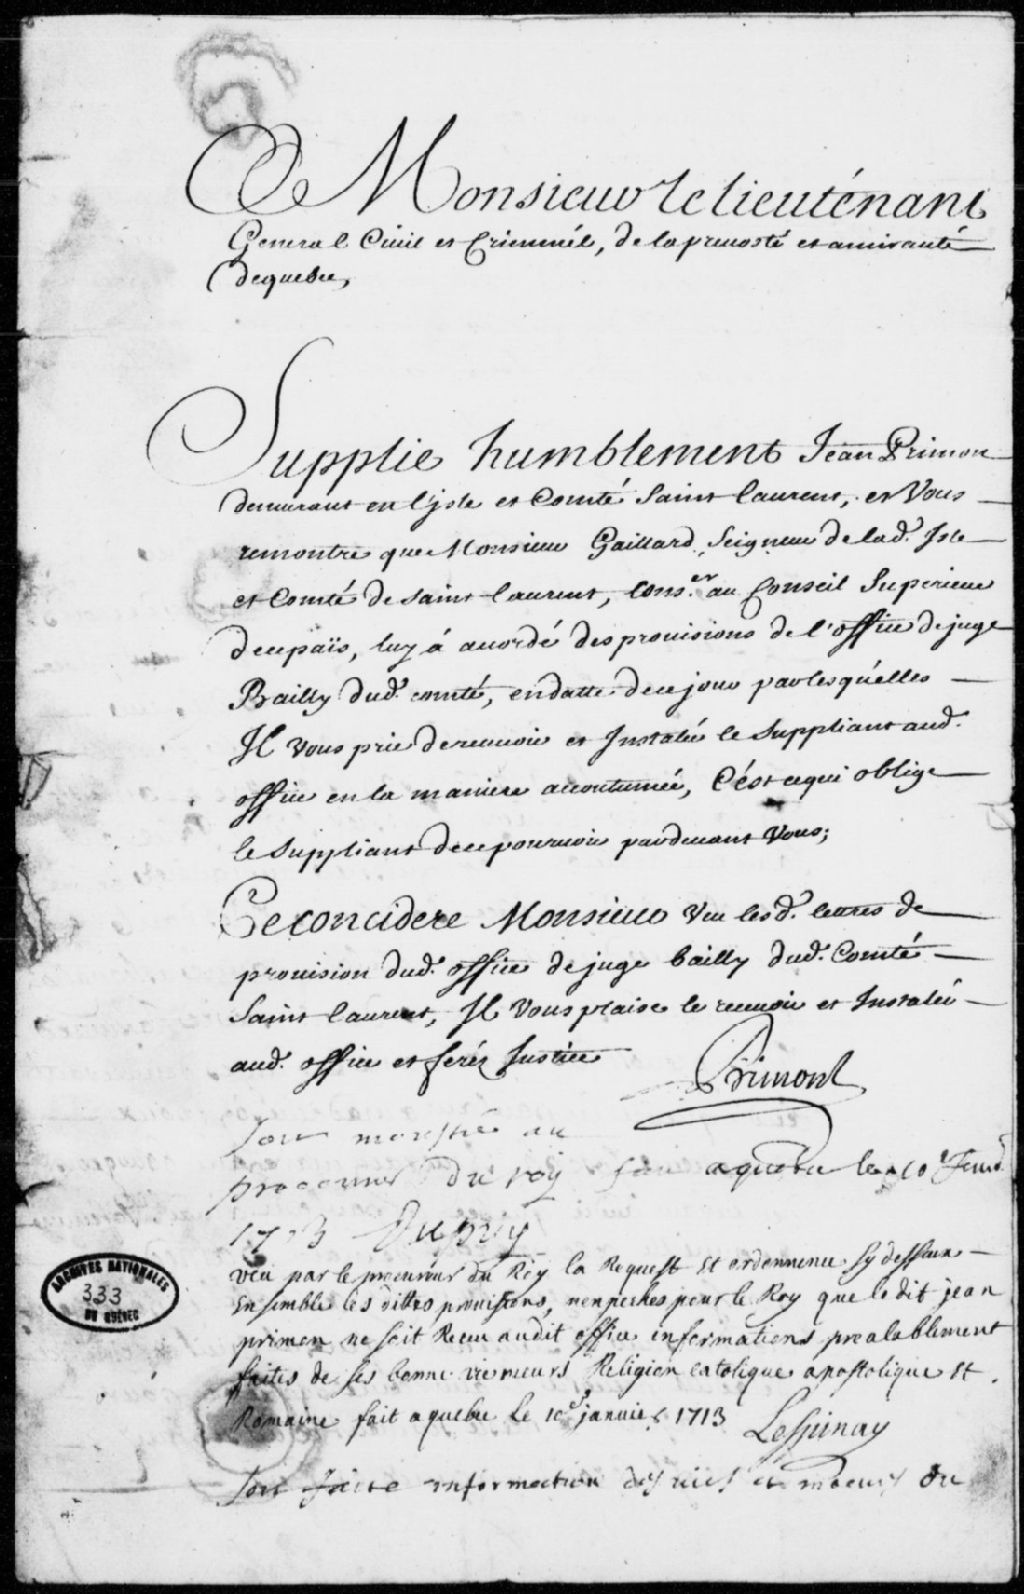 A Monsieur le lieuténant
General Ciuil et Crimmél, de la preuosté et amirauté
de quebec,
Supplie humblement Jean Primon
demeurant en l'isle et Comté Saint laurent, et Vous
remontre que Monsieur Gaillard Seigneur de lad. Isle
et Comté de saint laurent, Cons.er au Conseil Superieur
de ce païs, luy á acordé des prouisions de l'office de juge
Bailly dud. comté, en datte de ce jour par lesquélles
Il vous prie de receuoir et Installer le Suppliant aud.
office en la maniere accoutumée, C'ést ce qui oblige
le Suppliant de ce pouruoir pardeuant Vous;
Ce concidere Monsieur Veu lesd. lettres de
prouision dud. office de juge bailly dud. Comté
Saint laurent, Il Vous plaise le receuoir et Installér
aud. office et feréz Justice
Primont
Soit monstré au
procureur du roy fait a quebec le 10e Januier
1713 Dupuy
veu par le procureur du Roy la Requeste Et ordonnance sy dessus
Ensemble les dittes prouisions, nenpeches pour le Roy que le dit jean
primon ne soit Receu audit office informations prealablement
faites de ses bonne vie meurs Religion catolique apostolique Et
Romaine fait a quebec le 10e januier 1713
Lespinay
Soit faite information des uies et moeurs du
ARCHIVES NATIONALES
333
DU QUÉBEC